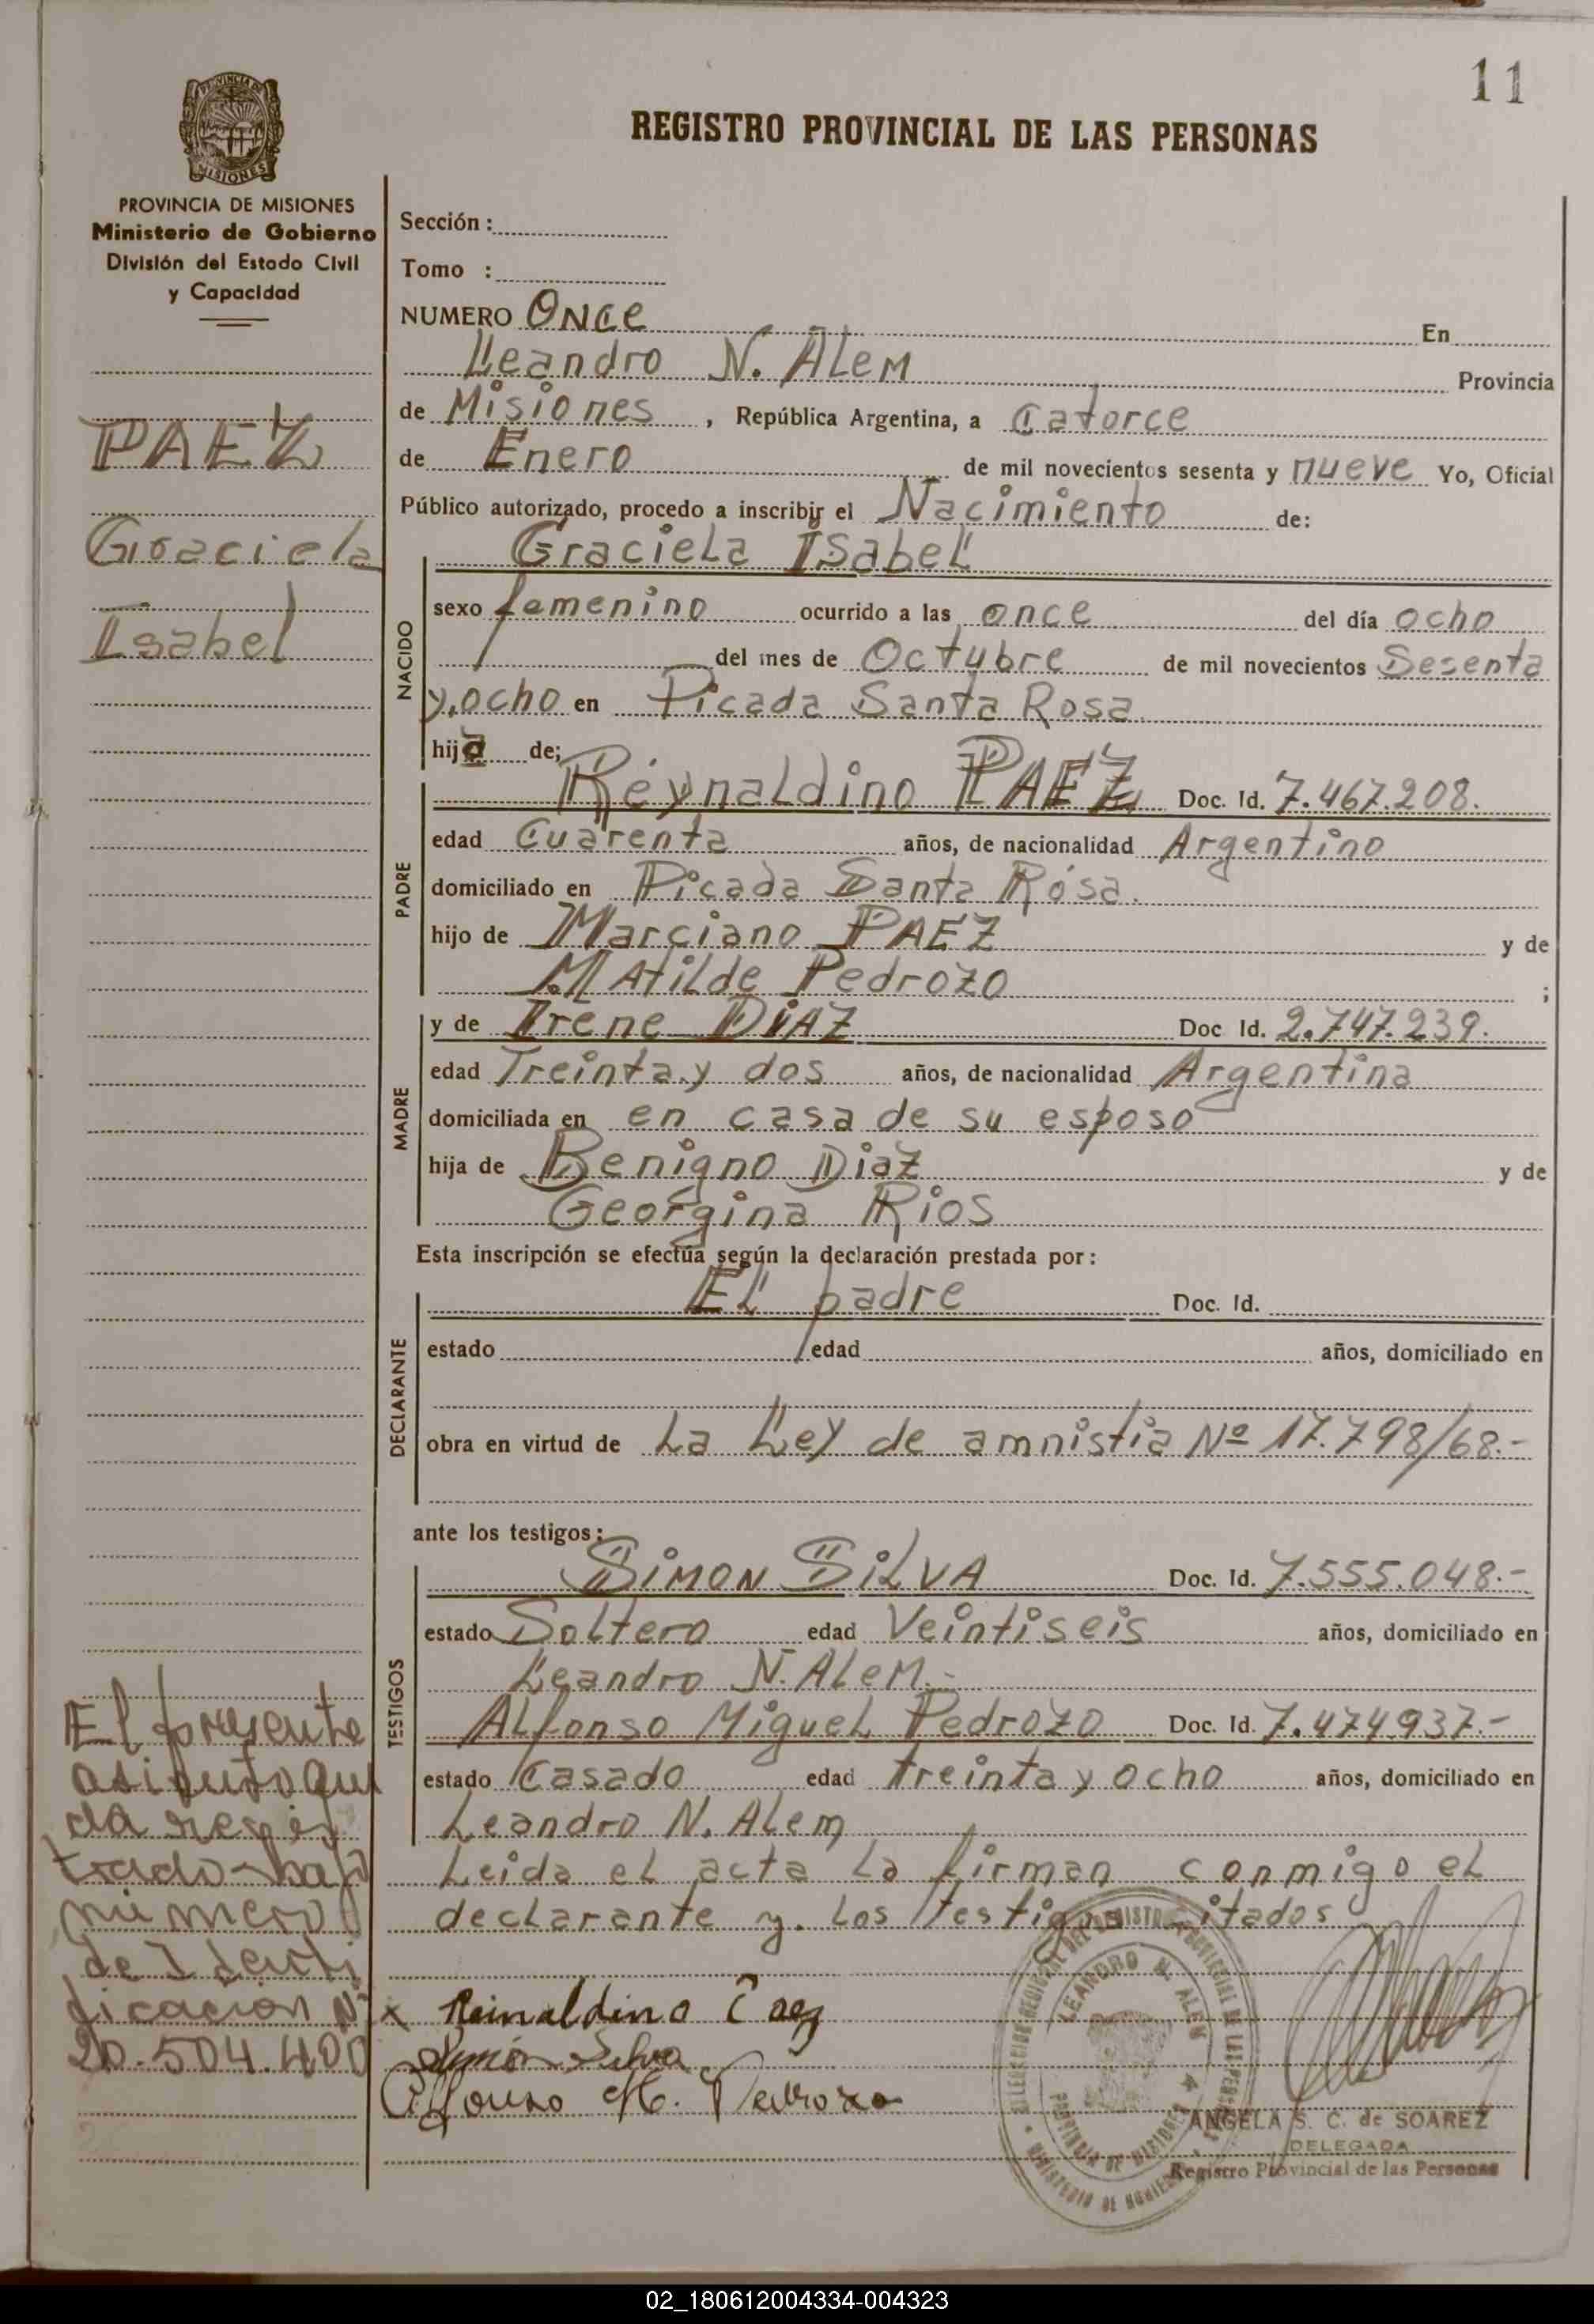 11
REGISTRO PROVINCIAL DE LAS PERSONAS
PROVINCIA DE MISIONES
MISIONES
PROVINCIA DE MISIONES
Ministerio de Gobierno
División del Estado Civil
y Capacidad
PAEZ
Graciela
Isabel
El presente
asiento que
da regis
trado bajo
número
de Identi
ficacion Nº
20.504.400
Sección :
Tomo :
NUMERO Once En
Leandro N. Alem Provincia
de Misiones , República Argentina, a Catorce
de Enero de mil novecientos sesenta y nueve Yo, Oficial
Público autorizado, procedo a inscribir el Nacimiento de:
NACIDO
Graciela Isabel
sexo femenino ocurrido a las once del día ocho
del mes de Octubre de mil novecientos Sesenta
y ocho en Picada Santa Rosa.
hija de;
PADRE
Reynaldino PAEZ Doc. Id. 7.467.208.
edad Cuarenta años, de nacionalidad Argentino
domiciliado en Picada Santa Rosa.
hijo de Marciano PAEZ y de
Matilde Pedrozo ;
MADRE
y de Irene DiAZ Doc Id. 2.747.239.
edad Treinta y dos años, de nacionalidad Argentina
domiciliada en en casa de su esposo
hija de Benigno Diaz y de
Georgina Rios
Esta inscripción se efectúa según la declaración prestada por :
DECLARANTE
El padre Doc. Id.
estado edad años, domiciliado en
obra en virtud de La Ley de amnistia Nº 17.798/68.-
ante los testigos ;
TESTIGOS
SiMON SiLVA Doc. Id. 7.555.048.-
estado Soltero edad Veintiseis años, domiciliado en
Leandro N. Alem.-
Alfonso Miguel Pedrozo Doc. Id. 7.474937.-
estado Casado edad treinta y ocho años, domiciliado en
Leandro N. Alem
Leida el acta la firman conmigo el
declarante y. los testigos citados
x Reinaldino Paez
Simón Silva
Alfonso M. Pedrozo
LEANDRO N. ALEM
PROVINCIA DE MISIONES
ANGELA S. C. de SOAREZ
DELEGADA
Registro Provincial de las Personas
02_180612004334-004323